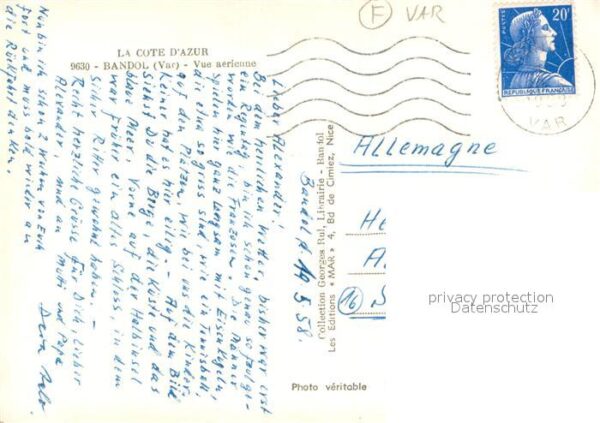 F VAR
LA COTE D'AZUR
9630 - BANDOL (Var) - Vue aérienne
POSTES 20F
REPUBLIQUE FRANÇAISE
VAR
Bandol d. 19.5.58.
Lieber Alexander!
Bei dem herrlichen Wetter, bisher war erst
ein Regentag, bin ich schon genau so faul ge-
worden wie die Franzosen. Die Männer
spielen hier ganz langsam mit Eisenkugeln,
die etwa so gross sind, wie ein Tennisball,
auf den Plätzen, wie bei uns die Kinder.
Keiner hat es hier eilig. - Auf dem Bild
siehst Du die Berge, die Küste und das
blaue Meer. Vorne auf der Halbinsel
war früher ein altes Schloss, in dem
Ritter gewohnt haben. -
Recht herzliche Grüsse für Dich, lieber
Alexander und an Mutti und Papa
Dein
Nun bin ich schon 2 Wochen von Euch
fort und muss bald wieder an
die Rückfahrt denken.
Collection Georges Rul, Librairie - Bandol
Les Editions "MAR" 4, Bd de Cimiez, Nice
Allemagne
He
A
16
privacy protection
Datenschutz
Photo véritable